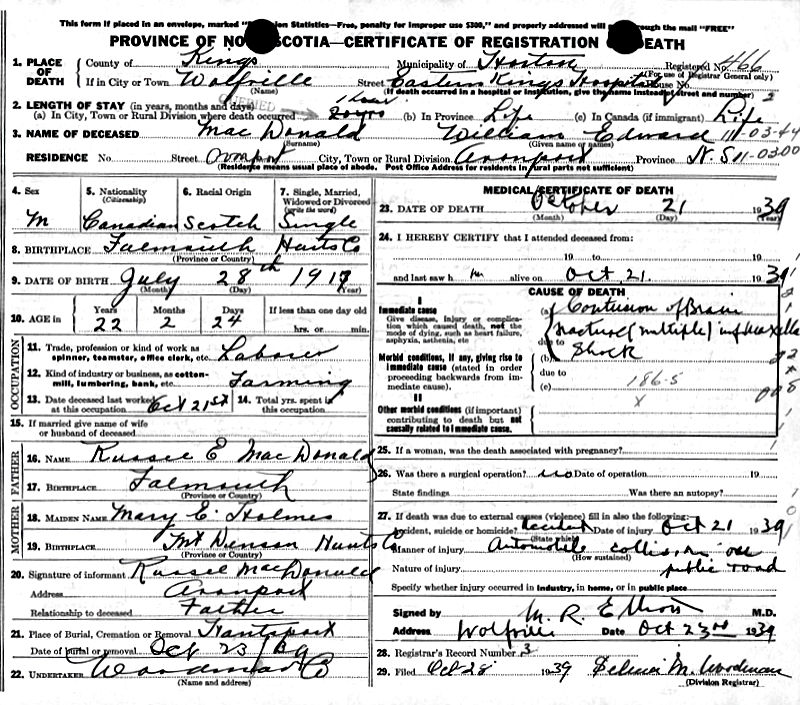 This form if placed in an envelope, marked " Statistics—Free, penalty for improper use $300," and properly addressed will through the mail "FREE"
PROVINCE OF NO SCOTIA—CERTIFICATE OF REGISTRATION DEATH
1. PLACE OF DEATH County of Kings Municipality of Horton Registered No. 466
(For use of Registrar General only)
If in City or Town Wolfville Street Eastern Kings Hospital House No.
(Name) (If death occurred in a hospital or institution, give the name instead of street and number)
2. LENGTH OF STAY (in years, months and days) 1 hour
(a) In City, Town or Rural Division where death occurred 20 yrs (b) In Province Life (c) In Canada (if immigrant) Life
3. NAME OF DECEASED MacDonald William Edward 111-03-44
(Surname) (Given name or names)
RESIDENCE No. Street City, Town or Rural Division Avonport Province N.S 11-0300
(Residence means usual place of abode. Post Office Address for residents in rural parts not sufficient)
4. Sex M
5. Nationality (Citizenship) Canadian
6. Racial Origin Scotch
7. Single, Married, Widowed or Divorced (write the word) Single
8. BIRTHPLACE Falmouth Hants Co
(Province or Country)
9. DATE OF BIRTH July 28th 1917
(Month) (Day) (Year)
10. AGE in Years Months Days If less than one day old
22 2 24 hrs. or min.
OCCUPATION
11. Trade, profession or kind of work as spinner, teamster, office clerk, etc. Laborer
12. Kind of industry or business, as cotton-mill, lumbering, bank, etc. Farming
13. Date deceased last worked at this occupation Oct 21st 14. Total yrs. spent in this occupation
15. If married give name of wife or husband of deceased
FATHER
16. NAME Russel E MacDonald
17. BIRTHPLACE Falmouth
(Province or Country)
MOTHER
18. MAIDEN NAME Mary E. Holmes
19. BIRTHPLACE Mt Denson Hants Co
(Province or Country)
20. Signature of informant Russel MacDonald
Address Avonport
Relationship to deceased Father
21. Place of Burial, Cremation or Removal Hantsport
Date of burial or removal Oct 23/39
22. UNDERTAKER Woodman Co
(Name and address)
MEDICAL CERTIFICATE OF DEATH
23. DATE OF DEATH October 21 1939
(Month) (Day) (Year)
24. I HEREBY CERTIFY that I attended deceased from:
19 to 19
and last saw h im alive on Oct 21. 1939
CAUSE OF DEATH
I
Immediate cause
Give disease, injury or complication which caused death, not the mode of dying, such as heart failure, asphyxia, asthenia, etc.
(a) Contusion of Brain
fracture (multiple)
due to
Morbid conditions, if any, giving rise to immediate cause (stated in order proceeding backwards from immediate cause).
(b) Shock
due to
(c) 186-5
x
II
Other morbid conditions (if important) contributing to death but not causally related to immediate cause.
25. If a woman, was the death associated with pregnancy?
26. Was there a surgical operation? no Date of operation 19
State findings Was there an autopsy?
27. If death was due to external causes (violence) fill in also the following:
Accident, suicide or homicide? Accident Date of injury Oct 21 1939
(State which)
Manner of injury Automobile collision on
(How sustained)
Nature of injury public road
Specify whether injury occurred in industry, in home, or in public place
Signed by M. R. Elliott M.D.
Address Wolfville Date Oct 23rd 1939
28. Registrar's Record Number 3
29. Filed Oct 28 1939 Selmer M. Woodman
(Division Registrar)